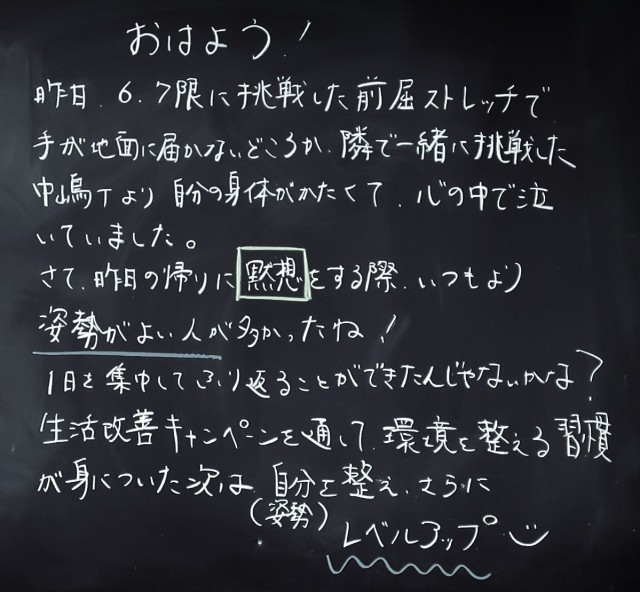 おはよう!
昨日、6.7限に挑戦した前屈ストレッチで
手が地面に届かないどころか、隣で一緒に挑戦した
中嶋Tより自分の身体がかたくて、心の中で泣
いていました。
さて、昨日の帰りに黙想をする際、いつもより
姿勢がよい人が多かったね!
1日を集中してふり返ることができたんじゃないかな?
生活改善キャンペーンを通して、環境を整える習慣
が身についた次は、自分を整え、さらに
(姿勢)
レベルアップ